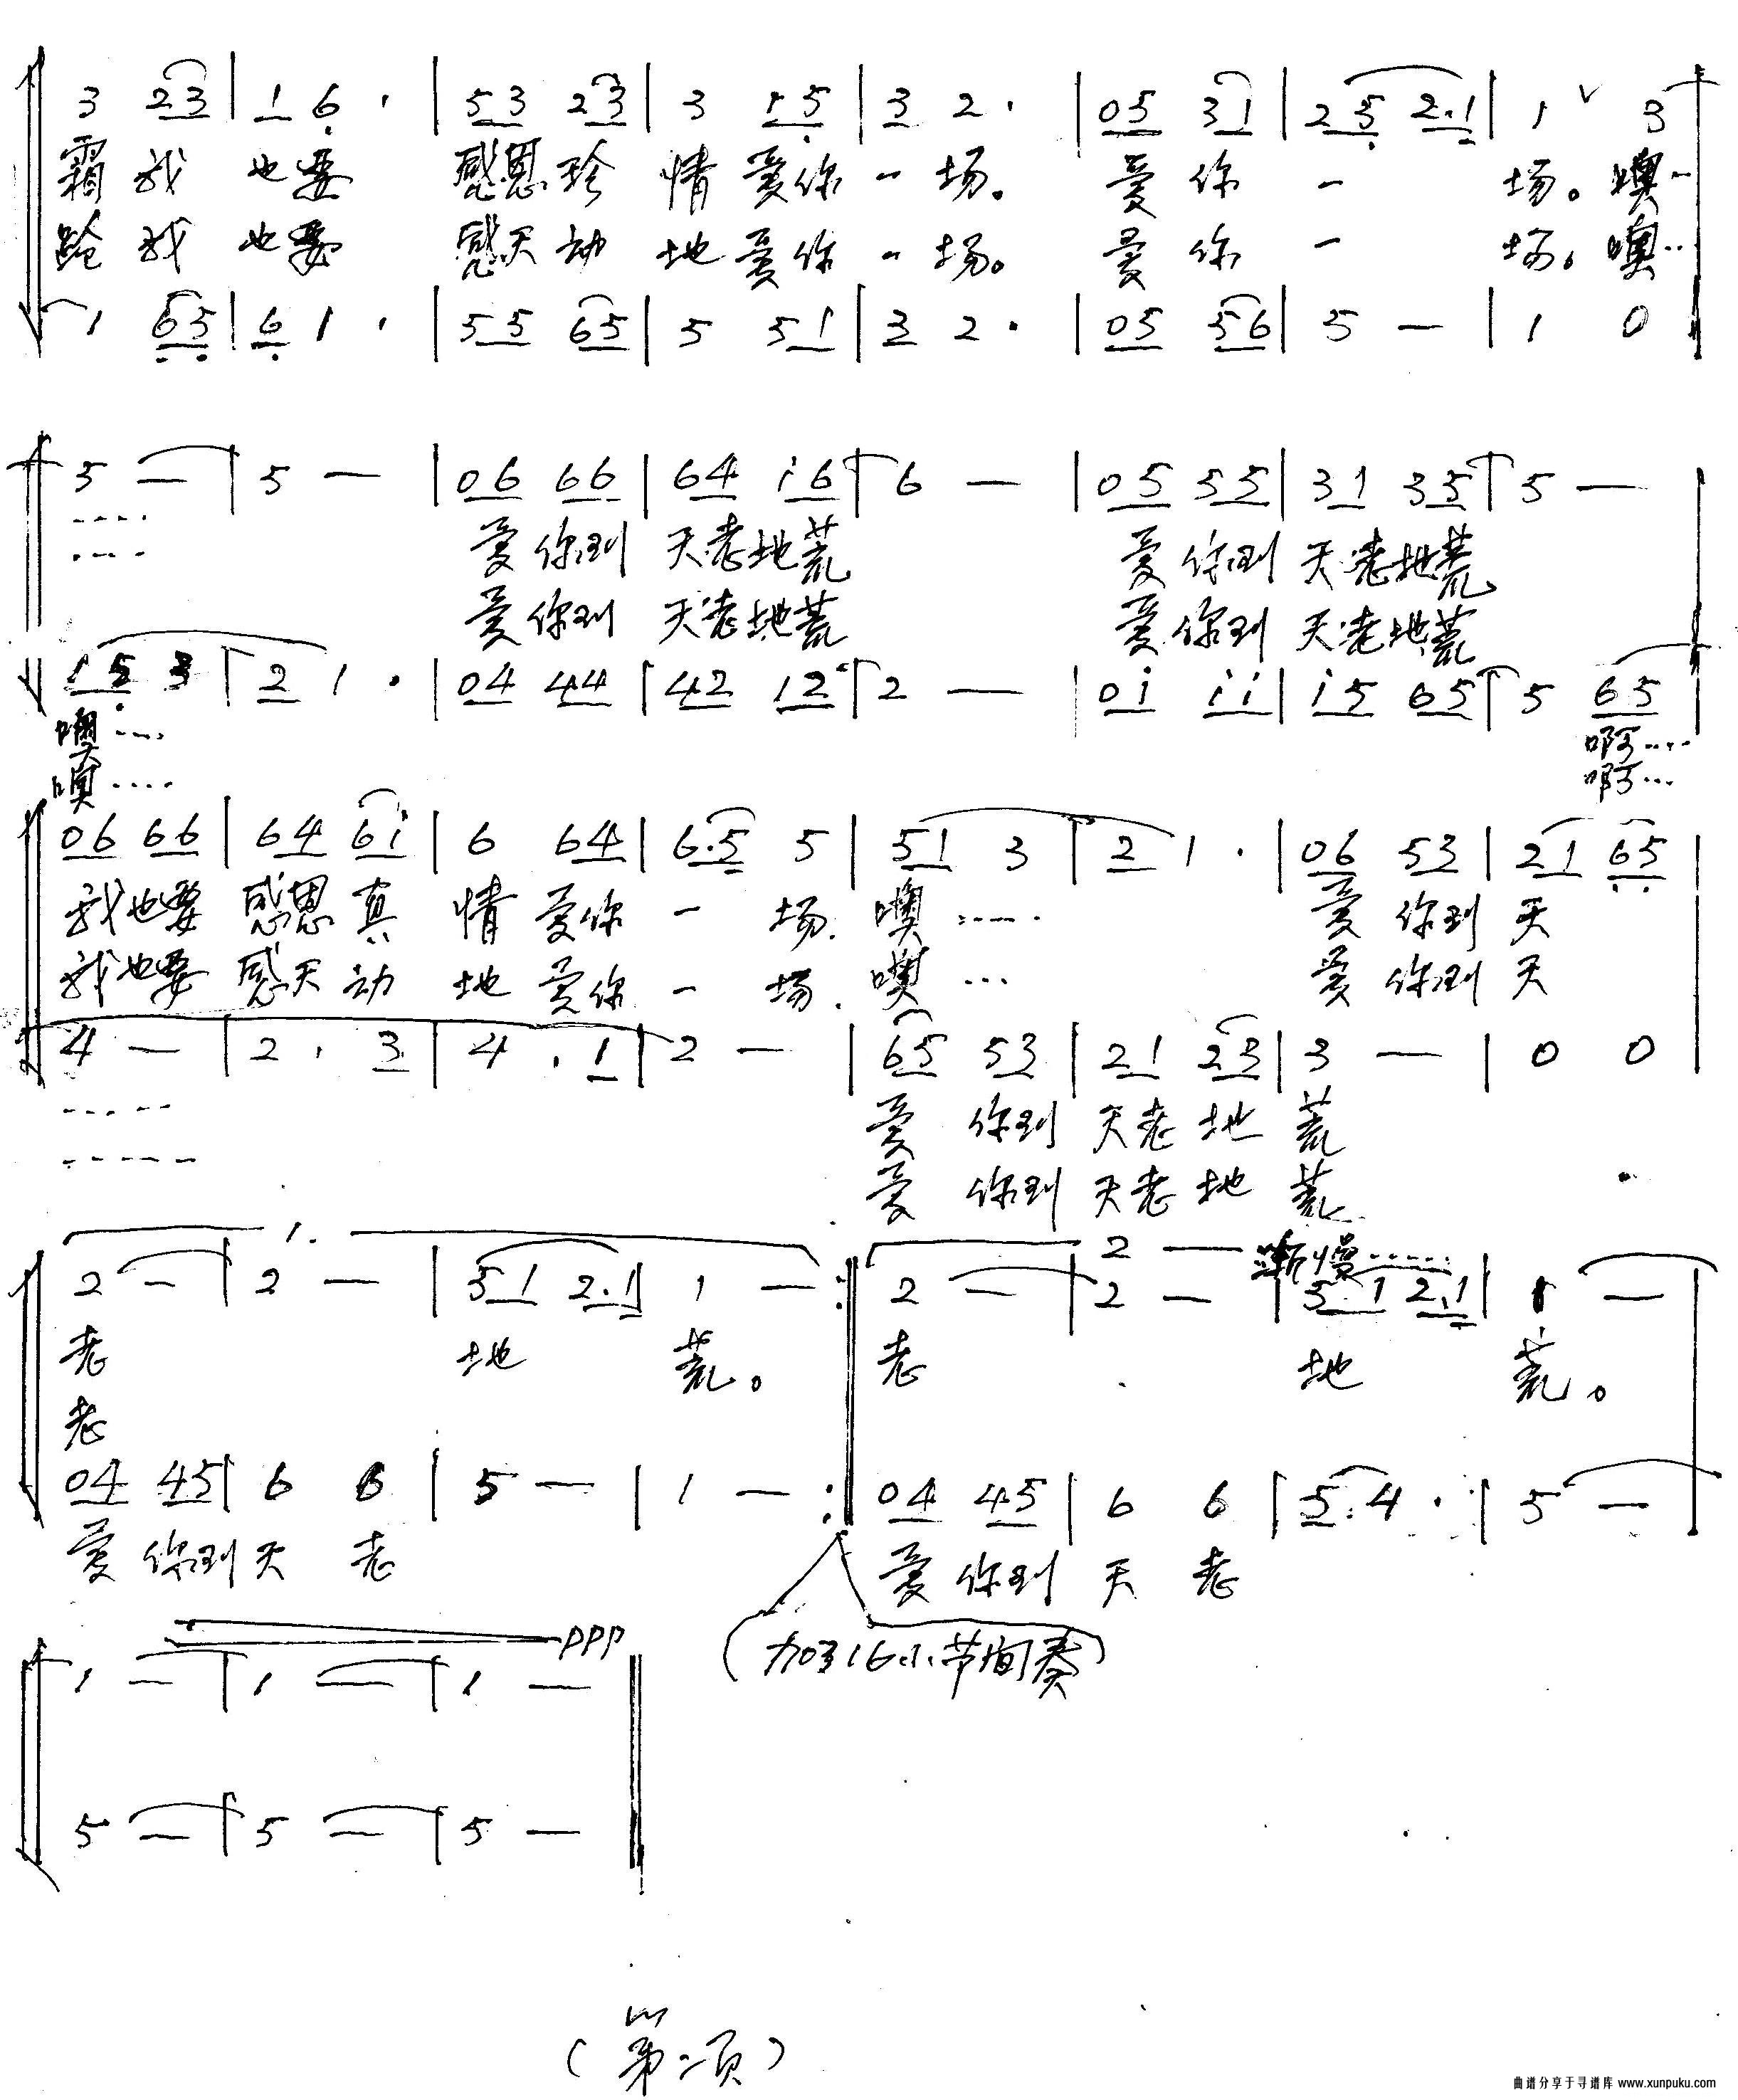 3 23 | 1 6 · | 53 23 | 3 15 | 3 2 · | 05 31 | 25 2·1 | 1 ∨ 3
霜 我 也要 感恩珍 情 爱你 一 场。 爱 你 一 场。噢…
跄 我 也要 感天动 地 爱你 一 场。 爱 你 一 场。噢…
1 65 | 6 1 · | 55 65 | 5 51 | 3 2 · | 05 56 | 5 — | 1 0
5 — | 5 — | 06 66 | 64 i6 | 6 — | 05 55 | 31 35 | 5 —
爱你到 天老地荒 爱你到 天老地荒
爱你到 天老地荒 爱你到 天老地荒
15 3 | 2 1 · | 04 44 | 42 12 | 2 — | 0i ii | i5 65 | 5 65
噢…… 啊……
噢…… 啊…
06 66 | 64 6i | 6 64 | 6·5 5 | 51 3 | 2 1 · | 06 53 | 21 65
我也要 感恩真 情 爱你 一 场. 噢…… 爱 你到 天
我也要 感天动 地 爱你 一 场. 噢… 爱 你到 天
4 — | 2 · 3 | 4 · 1 | 2 — | 65 53 | 21 23 | 3 — | 0 0
爱 你到 天老 地 荒
爱 你到 天老 地 荒
1. 2 渐慢……
2 — | 2 — | 51 2·1 | 1 — :‖ 2 — | 2 — | 51 2·1 | 1 —
老 地 荒。 老 地 荒。
老
04 45 | 6 6 | 5 — | 1 — :‖ 04 45 | 6 6 | 5 4 · | 5 —
爱 你到 天 老 爱 你到 天 老
ppp
(加了16小节间奏)
1 — | 1 — | 1 — ‖
5 — | 5 — | 5 — ‖
(第二页)
曲谱分享于寻谱库 www.xunpuku.com